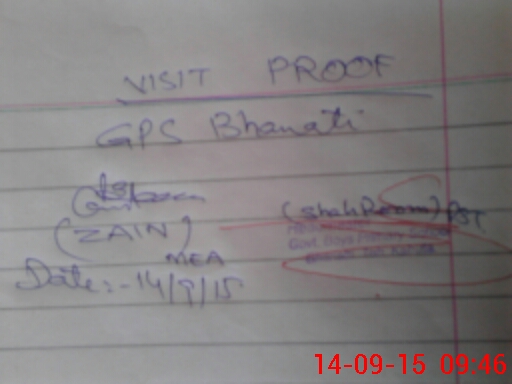 VISIT PROOF
GPS Bhanati
(ZAIN)
MEA
Date:-14/9/15
(Shah Room) PST
Govt. Boys Primary School
14-09-15 09:46